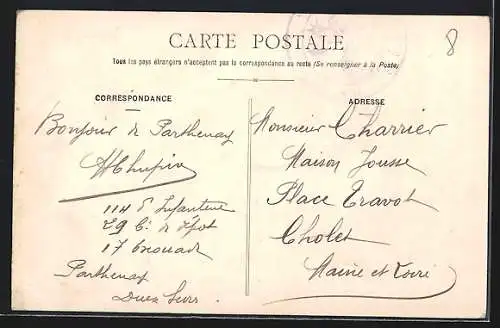 8
CARTE POSTALE
Tous les pays étrangers n'acceptent pas la correspondance au recto (Se renseigner à la Poste)
CORRESPONDANCE
ADRESSE
Bonjour de Parthenay
114 E Infanterie
29 Cie de dépôt
17
Parthenay
Deux Sevres
Monsieur Charrier
Maison Jousse
Place Travot
Cholet
Maine et Loire